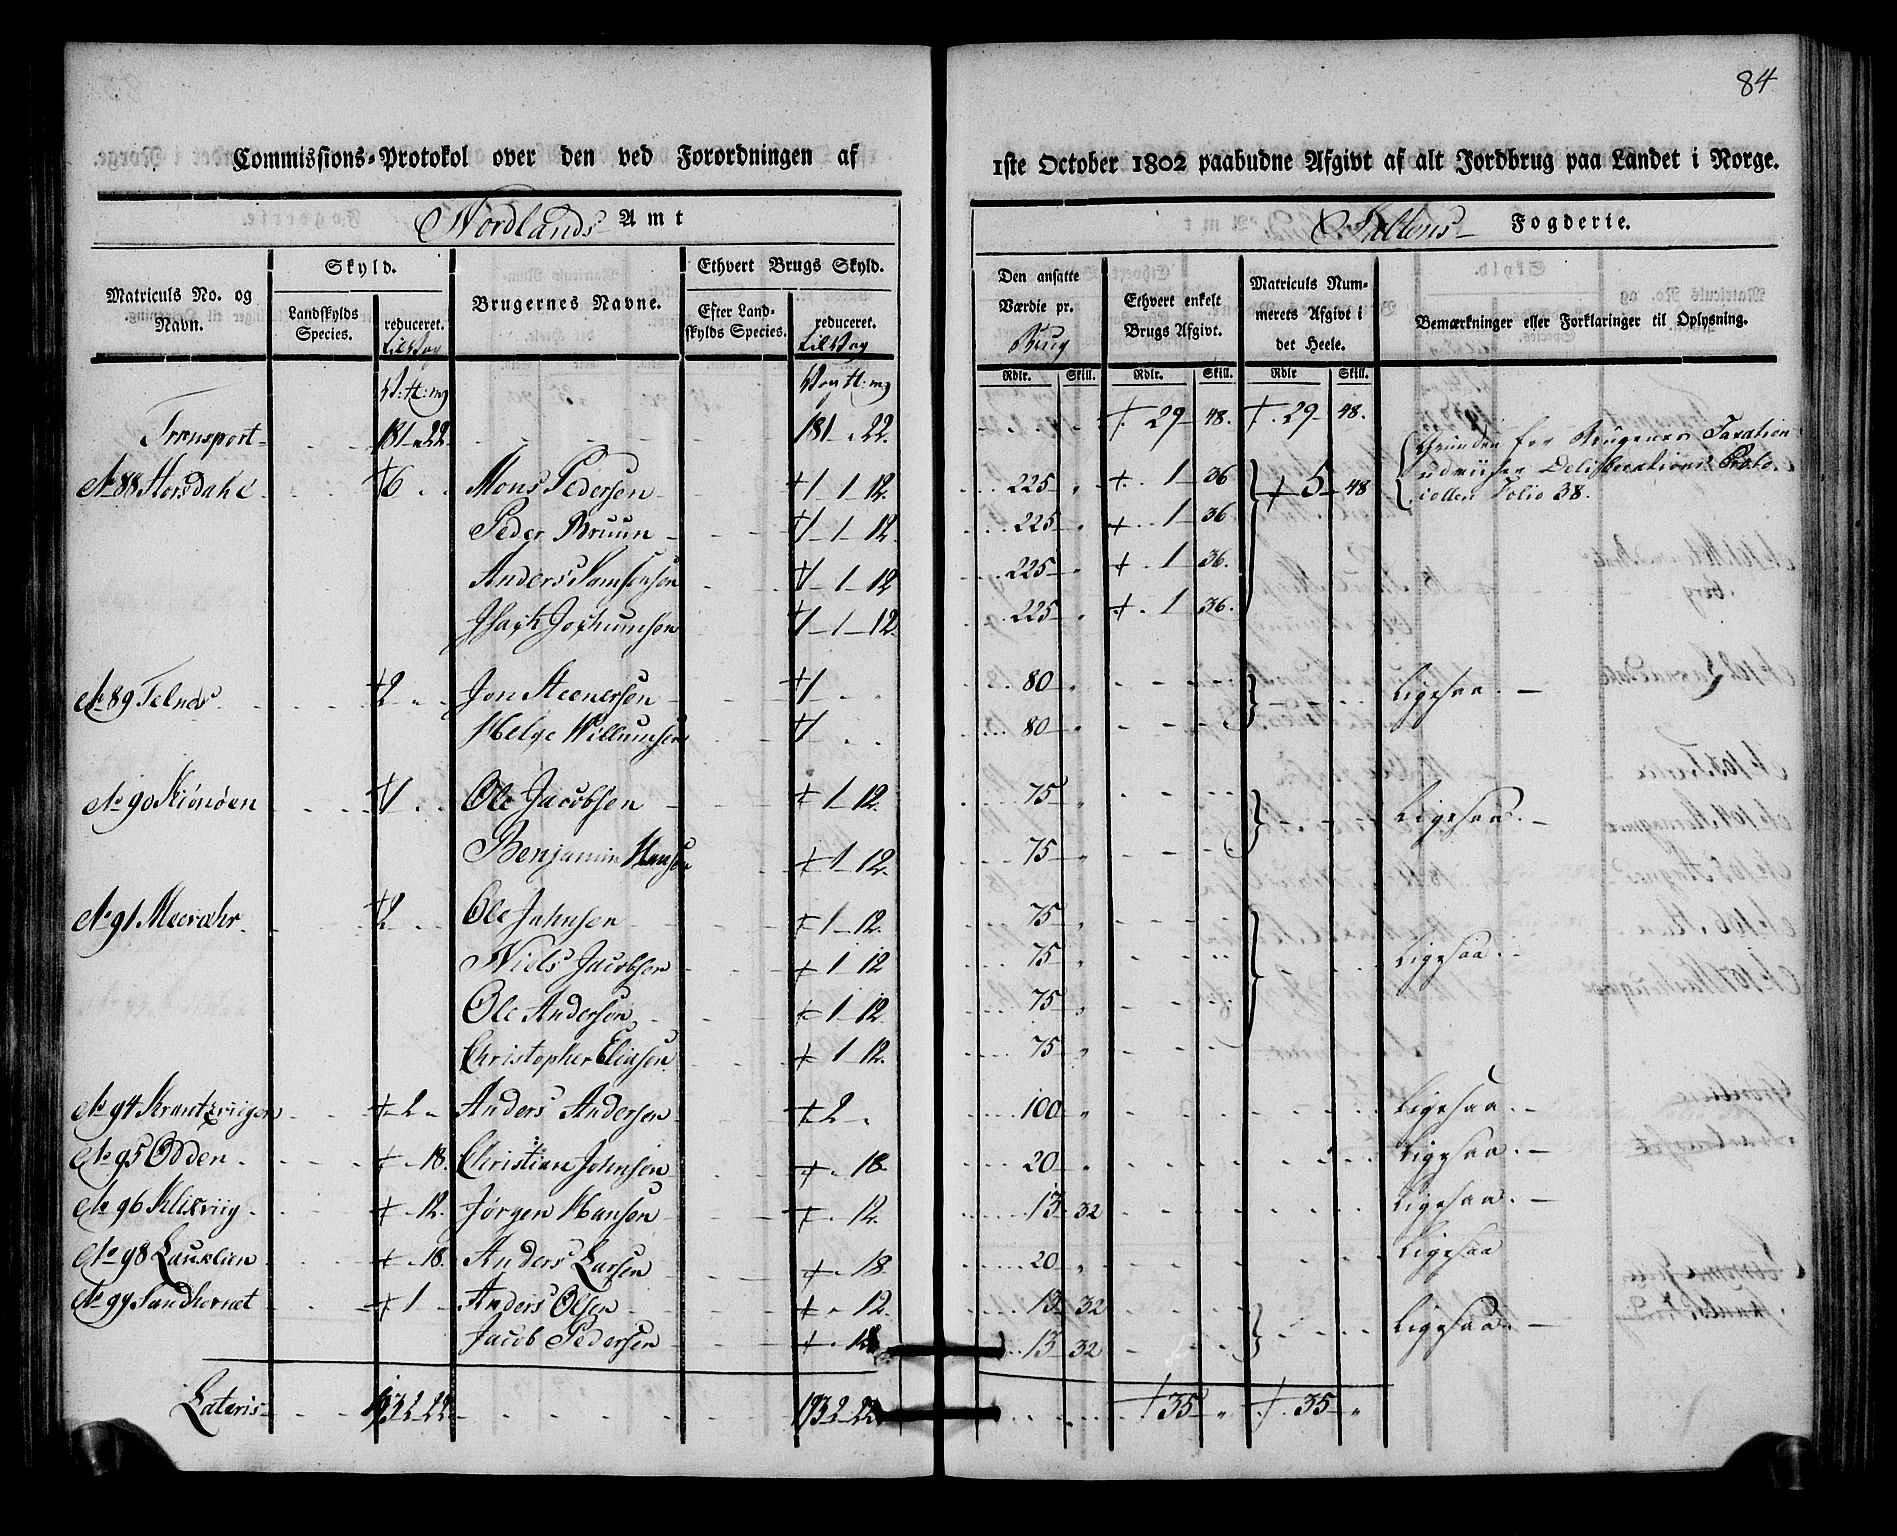 84
Commissions-Protokol over den ved Forordningen af 1ste October 1802 paabudne Afgivt af alt Jordbrug paa Landet i Norge.
Nordlands Amt
Saltens Fogderie.
Matriculs No. og Navn.
Skyld.
Landskylds Species.
reduceret.
Brugernes Navne.
Ethvert Brugs Skyld.
Efter Landskylds Species.
reduceret.
Den ansatte Værdie pr. Brug
Ethvert enkelt Brugs Afgivt.
Matriculs Nummerets Afgivt i det Heele.
Bemærkninger eller Forklaringer til Oplysning.
Rdlr. Skill. Rdlr. Skill. Rdlr Skill.
Transport 181 " 22. 181 " 22. 29 48. 29 48.
No 88 Horsdahl 6 Mons Pedersen 1 1 12 225 " 1 36 5 48 Grunden for Brugenes Taxation udviiser Deliberations Protocollen Folio 38.
Peder Bruun 1 1 12 225 " 1 36
Anders 1 1 12 225 " 1 36.
Isach Jochumsen 1 1 12 225 " 1 36.
No 89 Telnes 2 Jon Steenersen 1 80 " Ligesaa.
Helge Willumsen 1 80 "
No 90 1 Ole Jacobsen 1 12 75 " Ligesaa.
Benjamin Hansen 1 12. 75 "
No 91 2 Ole Johnsen 1 12. 75 " Ligesaa.
Niels Jacobsen 1 12 75 "
Ole Andersen 1 12 75 "
Christopher Eliasen 1 12. 75 "
No 94 2 Anders Andersen 2 100 " Ligesaa.
No 95 Odden 18. Christian Johnsen 18 20 " Ligesaa.
No 96 Klixviig 12. Jørgen Hansen 12. 13 32 Ligesaa.
No 98 18. Anders Larsen 18 20 " Ligesaa
No 99 Sandhornet 1 Anders Olsen 12. 13 32 Ligesaa.
Jacob Pedersen 12 13 32
Lateris 193 2 22. 193 2 22. 35 " 35 "